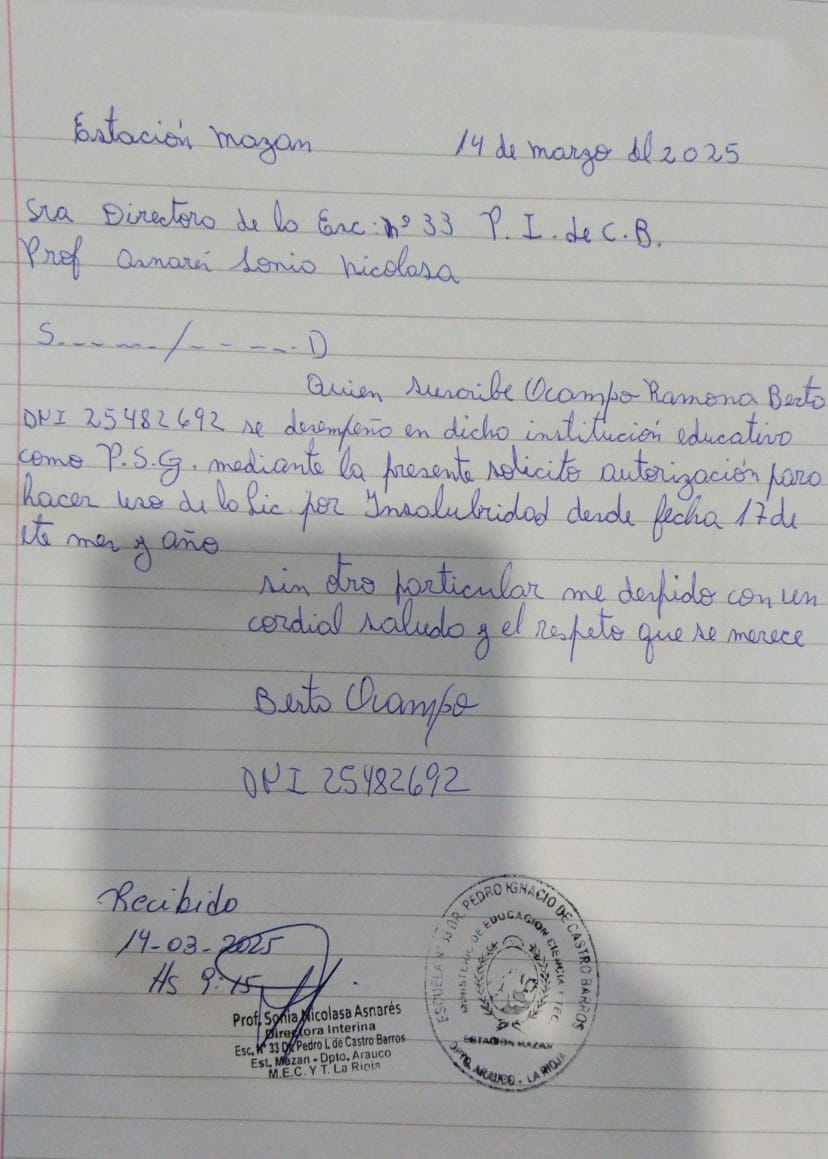 Estación Mazan 14 de marzo del 2025
Sra Directora de la Esc: nº 33 P. I. de C. B.
Prof Asnares Sonia Nicolasa
S.-----/-----D
Quien suscribe Ocampo Ramona Berta
DNI 25482692 se desempeña en dicha institución educativa
como P.S.G. mediante la presente solicito autorización para
hacer uso de la Lic por Insalubridad desde fecha 17 de
ete mes y año
sin otro particular me despido con un
cordial saludo y el respeto que se merece
Berta Ocampo
DNI 25482692
Recibido
14-03-2025
Hs 9:15
Prof. Sonia Nicolasa Asnarés
Directora Interina
Esc. Nº 33 Dr. Pedro I. de Castro Barros
Est. Mazan - Dpto. Arauco
M.E.C. Y T. La Rioja
ESCUELA Nº 33 DR. PEDRO IGNACIO DE CASTRO BARROS
MINISTERIO DE EDUCACION CIENCIA Y TEC.
ESTACION MAZAN
DPTO. ARAUCO - LA RIOJA